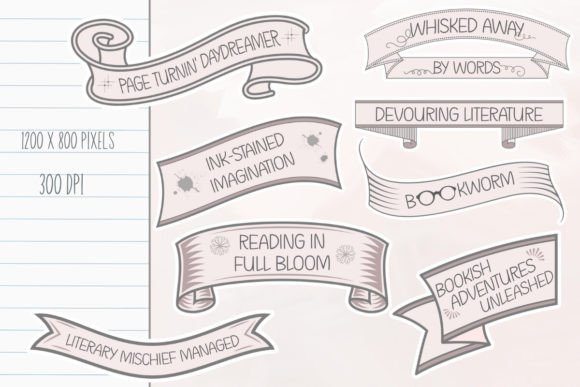 PAGE TURNIN' DAYDREAMER
WHISKED AWAY
BY WORDS
DEVOURING LITERATURE
1200 X 800 PIXELS
300 DPI
INK-STAINED
IMAGINATION
BOOKWORM
READING IN
FULL BLOOM
BOOKISH
ADVENTURES
UNLEASHED
LITERARY MISCHIEF MANAGED